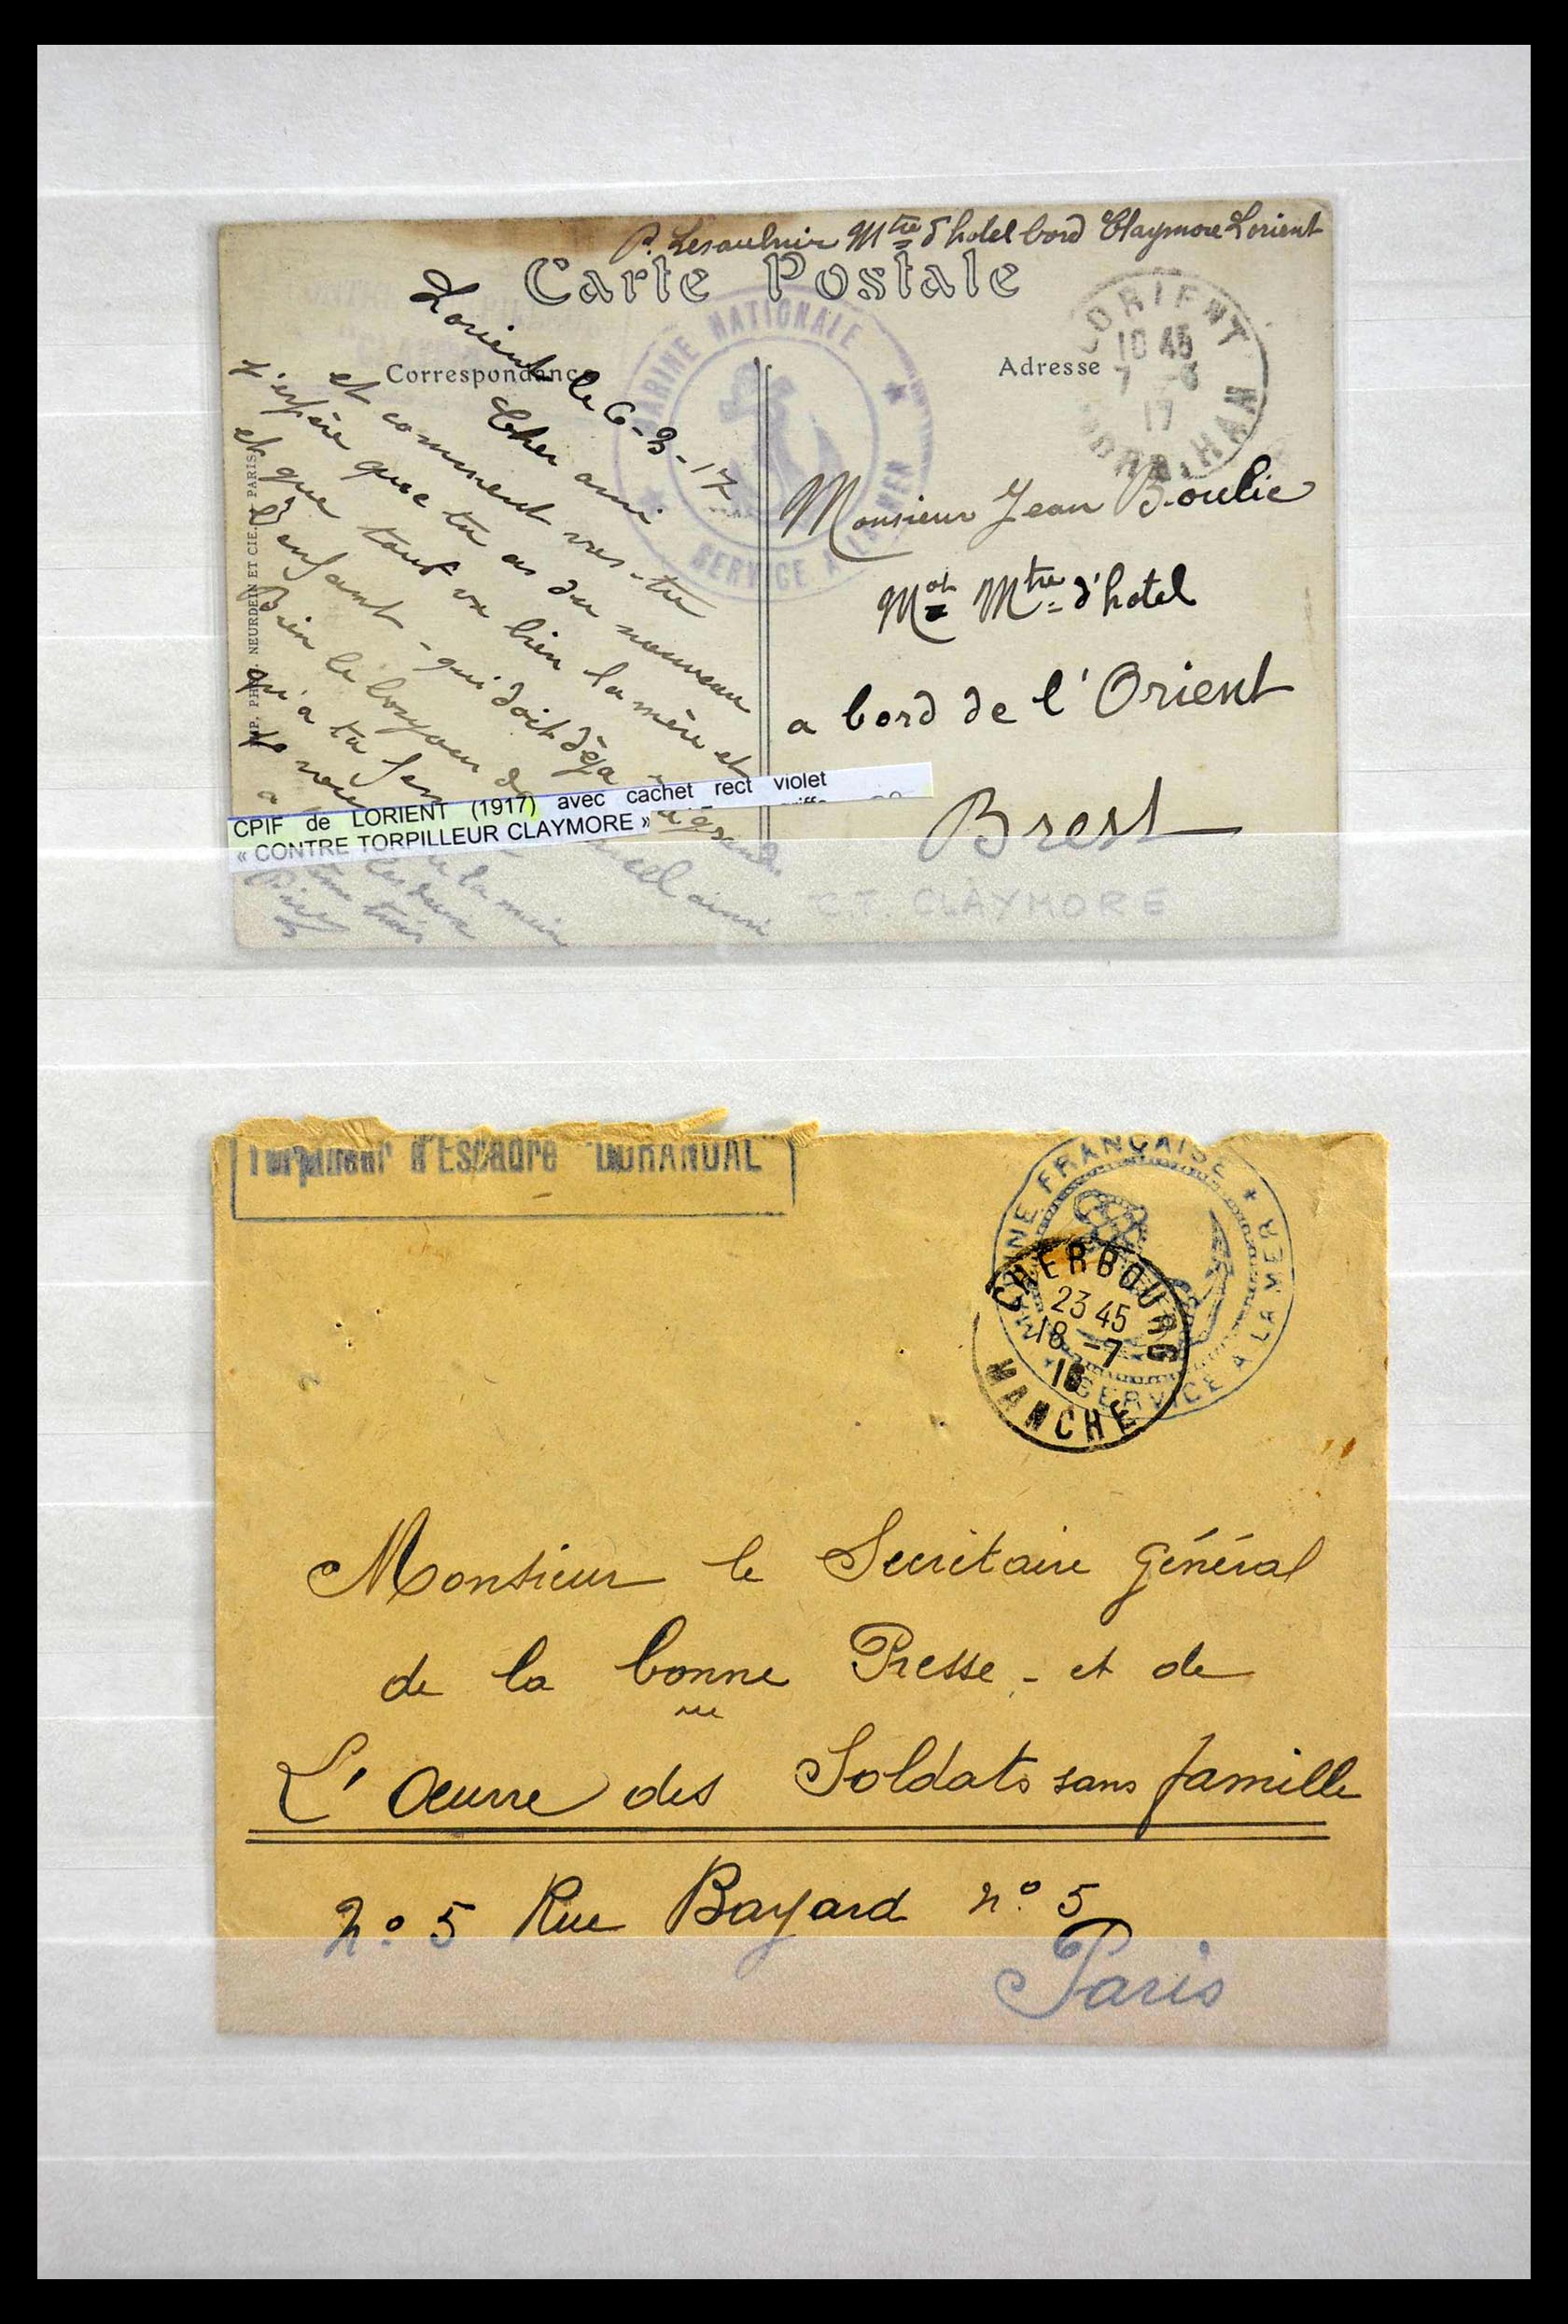 P. Lesaulnier Mtre d'hotel bord Claymore Lorient
Carte Postale
Correspondance
Adresse
MARINE NATIONALE
SERVICE A LA MER
LORIENT
10 45
7 -3
17
MORBIHAN
Lorient le 6-3-17
Cher ami
et comment vas-tu
j'espère que tu as du nouveau
et que tout va bien la mère et
L'enfant - qui doit déja
Bien le bonjour de
qu'a ta
a
la main
IMP. PHOT. NEURDEIN ET CIE. PARIS
Monsieur Jean Boulic
Mot Mtre d'hotel
a bord de l'Orient
Brest
CPIF de LORIENT (1917) avec cachet rect violet
« CONTRE TORPILLEUR CLAYMORE »
C.T. CLAYMORE
Torpilleur d'Escadre "DURANDAL"
MARINE FRANÇAISE
SERVICE A LA MER
CHERBOURG
23 45
18 -7
16
MANCHE
Monsieur le Secrétaire Général
de la bonne Presse - et de
L'Oeuvre des Soldats sans famille
No 5 Rue Bayard no 5
Paris